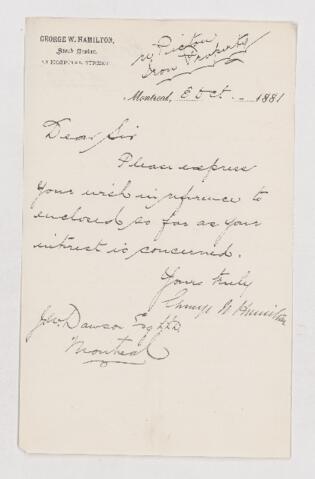 GEORGE W. HAMILTON,
Stock Broker.
HOSPITAL STREET
re Picton
Iron Property
Montreal, 8 Oct. 1881
Dear Sir
Please express
your wish in reference to
enclosed so far as your
interest is concerned.
Yours truly
George W Hamilton
J. W. Dawson Esq
Montreal